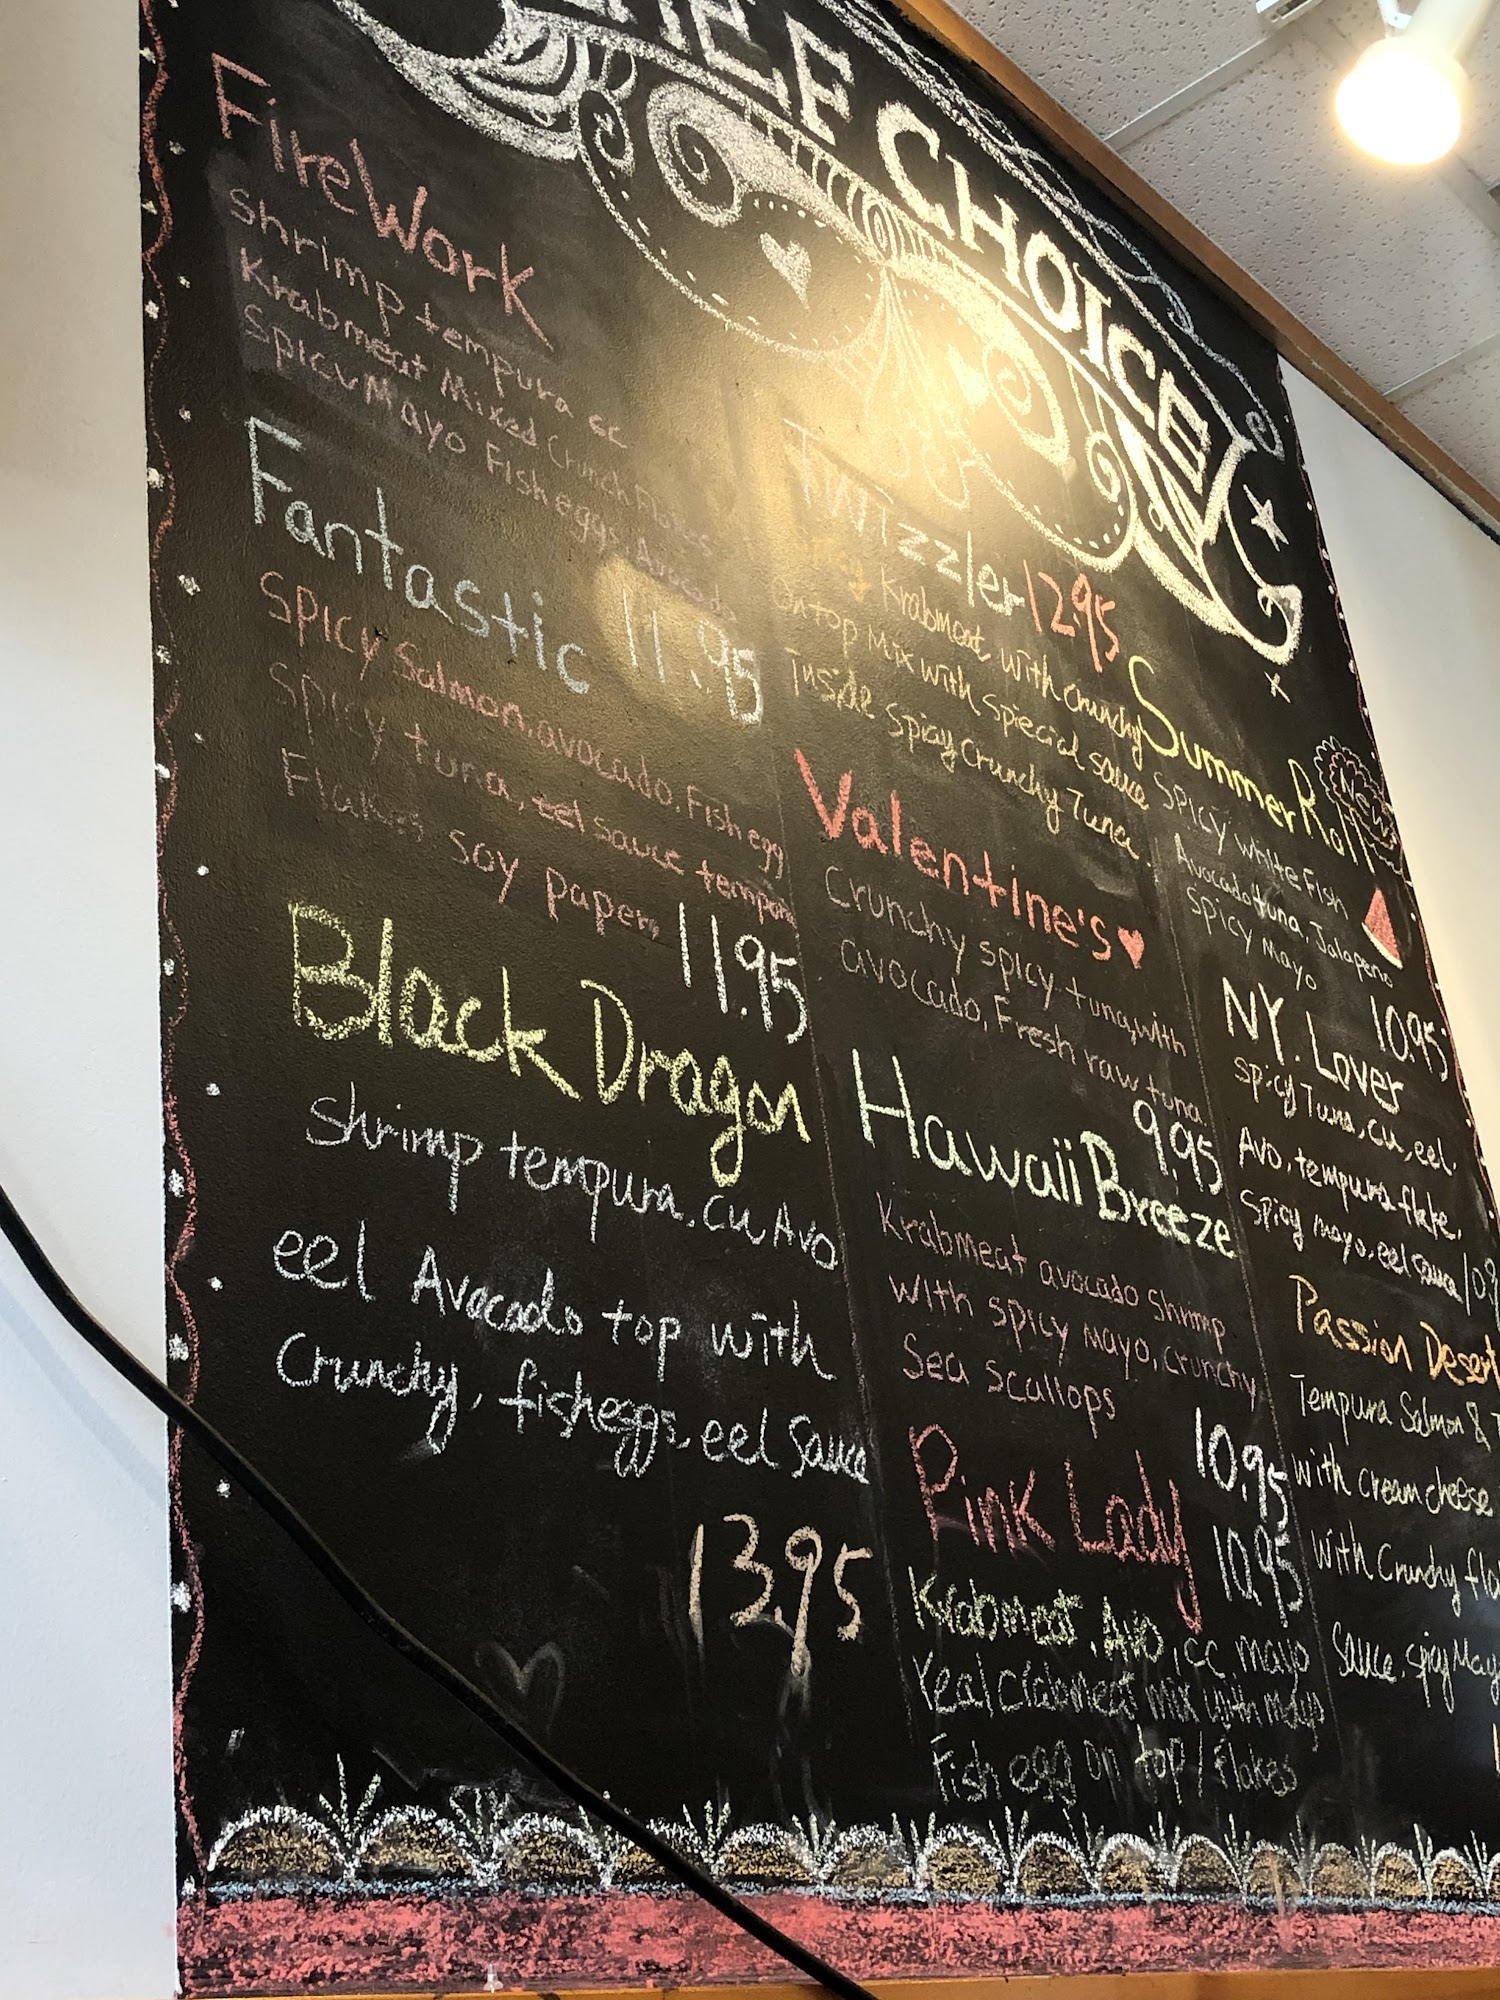 CHEF CHOICE
FireWork
shrimp tempura cc
Krabmeat Mixed Crunch Flakes
Spicy Mayo Fish eggs Avocado
11.95
Fantastic
Spicy Salmon, avocado, Fish egg
Spicy tuna, eel sauce tempura
Flakes, soy paper,
11.95
Black Dragon
Shrimp tempura, cu, Avo
eel Avocado top with
Crunchy, fisheggs, eel Sauce
13.95
Twizzler 12.95
Krabmeat with crunchy
on top Mix with Special sauce
Inside Spicy Crunchy Tuna.
Valentine's ♥
Crunchy spicy tuna, with
avocado, Fresh raw tuna
9.95
Hawaii Breeze
Krabmeat avocado Shrimp
with spicy mayo, crunchy
Sea scallops
10.95
Pink Lady
10.95
Krabmeat, Avo, cc, mayo
Real Crabmeat mix with mayo
Fish egg on top / Flakes
Summer Roll
New
Spicy white Fish
Avocado tuna, Jalapeno
Spicy Mayo
10.95
NY. Lover
Spicy Tuna, cu, eel.
Avo, tempura flake,
Spicy mayo, eel sauce
Passion Desert
Tempura Salmon &
with cream cheese
with Crunchy
Sauce, Spicy Mayo